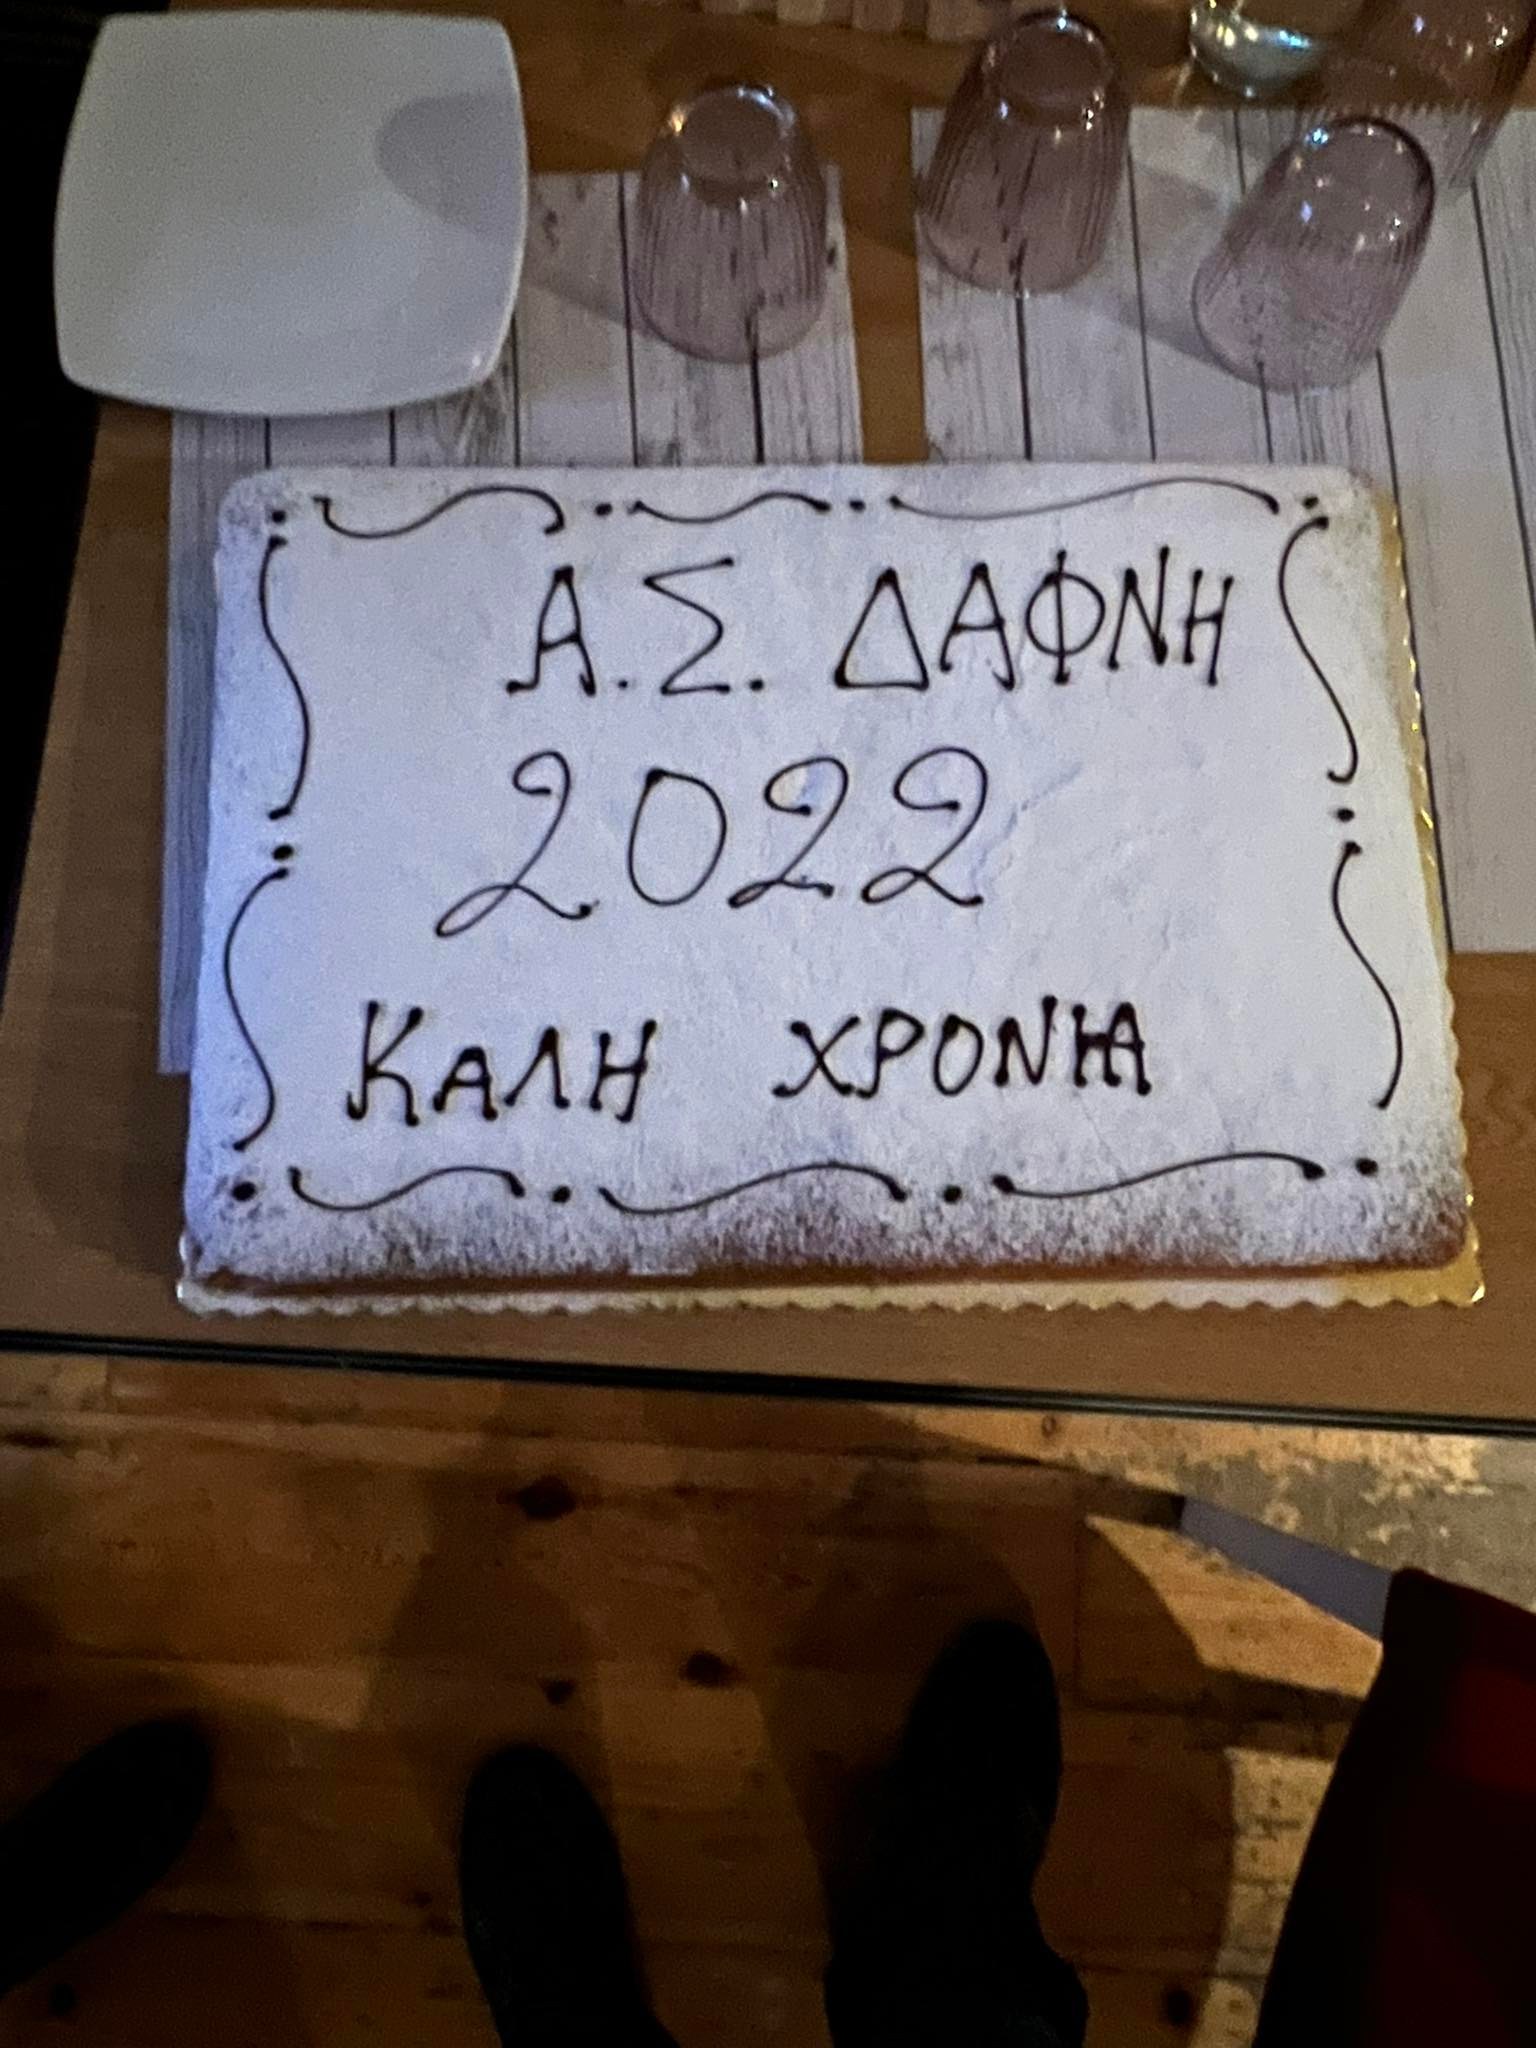 Α.Σ. ΔΑΦΝΗ
2022
ΚΑΛΗ ΧΡΟΝΙΑ